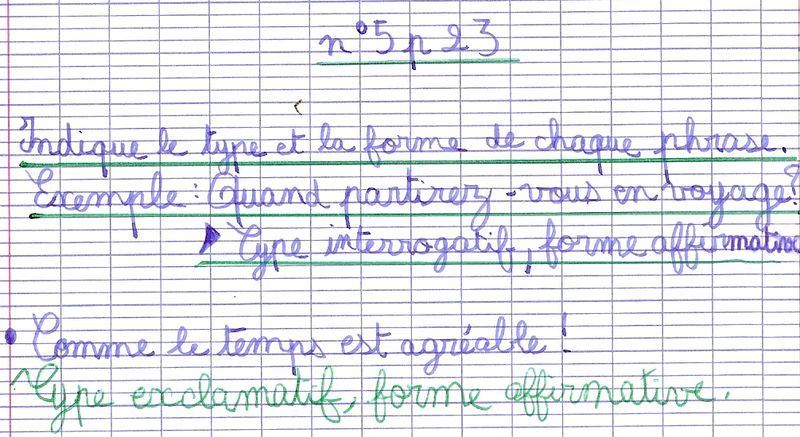 n°5 p 23
Indique le type et la forme de chaque phrase.
Exemple : Quand partirez-vous en voyage ?
Type interrogatif, forme affirmative
• Comme le temps est agréable !
Type exclamatif, forme affirmative.